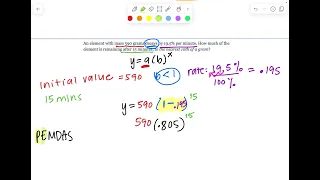 An element with mass 590 grams decays by 19.5% per minute. How much of the
element is remaining after 15 minutes, to the nearest 10th of a gram?
y = a(b)^x
Initial value = 590
b < 1
rate: 19.5% / 100% = .195
15 mins
y = 590 (1 - .195)^15
590 (.805)^15
PEMDAS